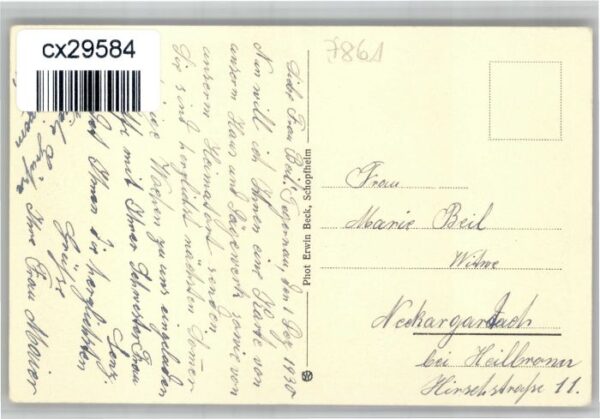 cx29584
7861
Liebe Frau Beil! Tegernau, Im 1 Dez 1930
Nun will ich Ihnen eine Karte von
unserm Haus und Sägewerk sowie von
unserm Heimatort senden
Sie sind herzlichst nächsten Sommer
Wochen zu uns eingeladen
mit Ihrer Schwester Frau
Lenz.
Ihnen die herzlichsten
Grüße
Ihre Frau Maier
Phot Erwin Beck, Schopfheim
Frau
Marie Beil
Witwe
Neckargartach
bei Heilbronn
Hirschstraße 11.